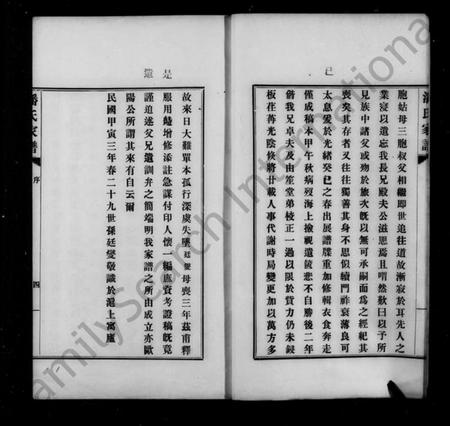 潘氏家譜
已
胞姑母三胞叔父相繼即世追往道故漸寂於耳先人之
業寖以遺忘我長兄殿夫公滋思焉且喟然歎曰以予所
見族中諸父或歿於旅次旣以無可承嗣而爲之經祀其
喪矣其存者又往往獨善其身不思似續門祚衰薄良可
太息爰於光緒癸巳之春出展譜牒重加修輯衣食奔走
僅成稿甲午秋病歿海上撿視遺牘悲不自勝後二年
偕我兄卓夫及由笙堂弟校正一過以限於貲力仍未鋟
板荏苒光陰倐將廿載人事代謝時局變更加以萬方多
是
遑
故來日大難單本孤行深慮失墜廷燮母喪三年茲甫釋
服用趁增修添註急謀付印人懷一編庶資考證稿旣竟
謹追述父兄遺訓弁之簡端明我家譜之所由成立亦歐
陽公所謂其來有自云爾
民國甲寅三年春二十九世孫廷燮敬識於滬上寓廬
潘氏家譜
序
四
FamilySearch International